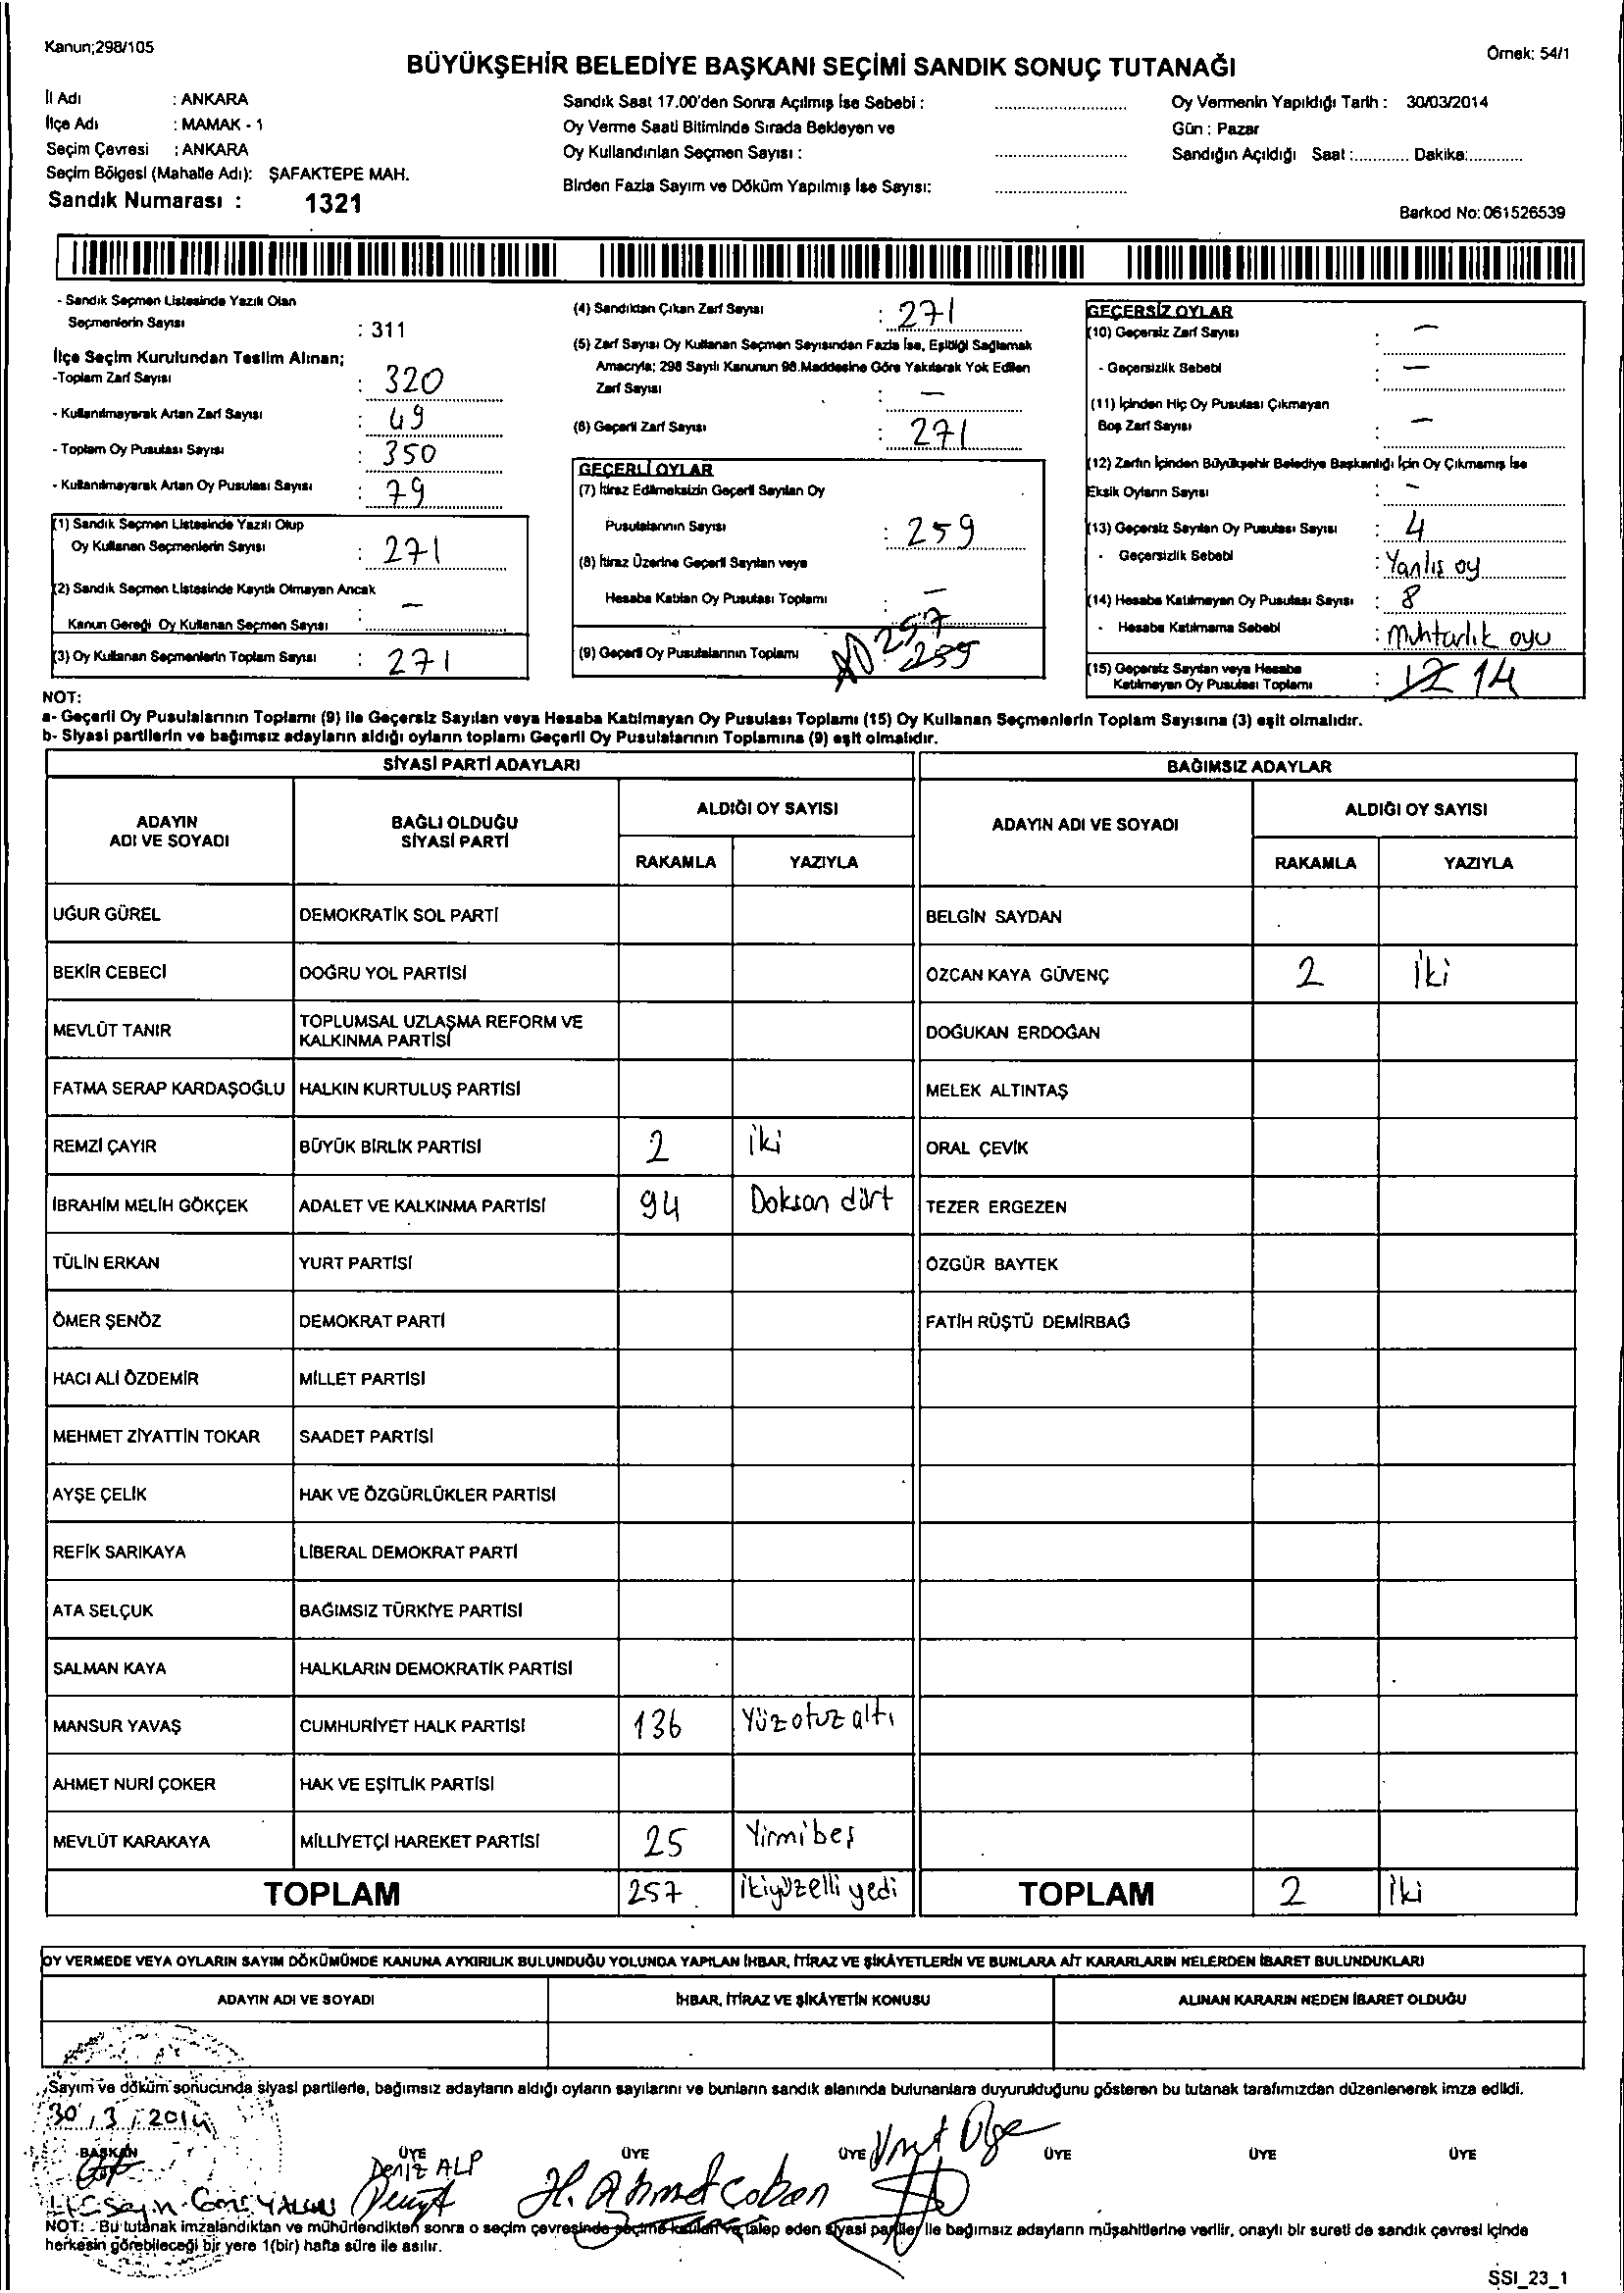 Kanun;298/105
Örnek: 54/1
BÜYÜKŞEHİR BELEDİYE BAŞKANI SEÇİMİ SANDIK SONUÇ TUTANAĞI
İl Adı : ANKARA
İlçe Adı : MAMAK - 1
Seçim Çevresi : ANKARA
Seçim Bölgesi (Mahalle Adı): ŞAFAKTEPE MAH.
Sandık Numarası : 1321
Sandık Saat 17.00'den Sonra Açılmış İse Sebebi :
Oy Verme Saati Bitiminde Sırada Bekleyen ve
Oy Kullandırılan Seçmen Sayısı :
Birden Fazla Sayım ve Döküm Yapılmış İse Sayısı:
Oy Vermenin Yapıldığı Tarih : 30/03/2014
Gün : Pazar
Sandığın Açıldığı Saat :............ Dakika:............
Barkod No: 061526539
- Sandık Seçmen Listesinde Yazılı Olan
Seçmenlerin Sayısı : 311
İlçe Seçim Kurulundan Teslim Alınan;
-Toplam Zarf Sayısı : 320
- Kullanılmayarak Artan Zarf Sayısı : 49
- Toplam Oy Pusulası Sayısı : 350
- Kullanılmayarak Artan Oy Pusulası Sayısı : 79
(1) Sandık Seçmen Listesinde Yazılı Olup
Oy Kullanan Seçmenlerin Sayısı : 271
(2) Sandık Seçmen Listesinde Kayıtlı Olmayan Ancak
Kanun Gereği Oy Kullanan Seçmen Sayısı : —
(3) Oy Kullanan Seçmenlerin Toplam Sayısı : 271
(4) Sandıktan Çıkan Zarf Sayısı : 271
(5) Zarf Sayısı Oy Kullanan Seçmen Sayısından Fazla İse, Eşitliği Sağlamak
Amacıyla; 298 Sayılı Kanunun 98.Maddesine Göre Yakılarak Yok Edilen
Zarf Sayısı : —
(6) Geçerli Zarf Sayısı : 271
GEÇERLİ OYLAR
(7) İtiraz Edilmeksizin Geçerli Sayılan Oy
Pusulalarının Sayısı : 259
(8) İtiraz Üzerine Geçerli Sayılan veya
Hesaba Katılan Oy Pusulası Toplamı : —
(9) Geçerli Oy Pusulalarının Toplamı : 257 259
GEÇERSİZ OYLAR
(10) Geçersiz Zarf Sayısı : —
- Geçersizlik Sebebi : —
(11) İçinden Hiç Oy Pusulası Çıkmayan
Boş Zarf Sayısı : —
(12) Zarfın İçinden Büyükşehir Belediye Başkanlığı İçin Oy Çıkmamış İse
Eksik Oyların Sayısı : -
(13) Geçersiz Sayılan Oy Pusulası Sayısı : 4
- Geçersizlik Sebebi : Yanlış oy
(14) Hesaba Katılmayan Oy Pusulası Sayısı : 8
- Hesaba Katılmama Sebebi : muhtarlık oyu
(15) Geçersiz Sayılan veya Hesaba
Katılmayan Oy Pusulası Toplamı : 12 14
NOT:
a- Geçerli Oy Pusulalarının Toplamı (9) ile Geçersiz Sayılan veya Hesaba Katılmayan Oy Pusulası Toplamı (15) Oy Kullanan Seçmenlerin Toplam Sayısına (3) eşit olmalıdır.
b- Siyasi partilerin ve bağımsız adayların aldığı oyların toplamı Geçerli Oy Pusulalarının Toplamına (9) eşit olmalıdır.
SİYASİ PARTİ ADAYLARI
BAĞIMSIZ ADAYLAR
ADAYIN ADI VE SOYADI
BAĞLI OLDUĞU SİYASİ PARTİ
ALDIĞI OY SAYISI
RAKAMLA YAZIYLA
ADAYIN ADI VE SOYADI
ALDIĞI OY SAYISI
RAKAMLA YAZIYLA
UĞUR GÜREL DEMOKRATİK SOL PARTİ BELGİN SAYDAN
BEKİR CEBECİ DOĞRU YOL PARTİSİ ÖZCAN KAYA GÜVENÇ 2 İki
MEVLÜT TANIR TOPLUMSAL UZLAŞMA REFORM VE KALKINMA PARTİSİ DOĞUKAN ERDOĞAN
FATMA SERAP KARDAŞOĞLU HALKIN KURTULUŞ PARTİSİ MELEK ALTINTAŞ
REMZİ ÇAYIR BÜYÜK BİRLİK PARTİSİ 2 iki ORAL ÇEVİK
İBRAHİM MELİH GÖKÇEK ADALET VE KALKINMA PARTİSİ 94 Doksan dört TEZER ERGEZEN
TÜLİN ERKAN YURT PARTİSİ ÖZGÜR BAYTEK
ÖMER ŞENÖZ DEMOKRAT PARTİ FATİH RÜŞTÜ DEMİRBAĞ
HACI ALİ ÖZDEMİR MİLLET PARTİSİ
MEHMET ZİYATTİN TOKAR SAADET PARTİSİ
AYŞE ÇELİK HAK VE ÖZGÜRLÜKLER PARTİSİ
REFİK SARIKAYA LİBERAL DEMOKRAT PARTİ
ATA SELÇUK BAĞIMSIZ TÜRKİYE PARTİSİ
SALMAN KAYA HALKLARIN DEMOKRATİK PARTİSİ
MANSUR YAVAŞ CUMHURİYET HALK PARTİSİ 136 Yüzotuzaltı
AHMET NURİ ÇOKER HAK VE EŞİTLİK PARTİSİ
MEVLÜT KARAKAYA MİLLİYETÇİ HAREKET PARTİSİ 25 Yirmibeş
TOPLAM 257 ikiyüzelli yedi TOPLAM 2 İki
OY VERMEDE VEYA OYLARIN SAYIM DÖKÜMÜNDE KANUNA AYKIRILIK BULUNDUĞU YOLUNDA YAPILAN İHBAR, İTİRAZ VE ŞİKÂYETLERİN VE BUNLARA AİT KARARLARIN NELERDEN İBARET BULUNDUKLARI
ADAYIN ADI VE SOYADI İHBAR, İTİRAZ VE ŞİKÂYETİN KONUSU ALINAN KARARIN NEDEN İBARET OLDUĞU
Sayım ve döküm sonucunda siyasi partilerle, bağımsız adayların aldığı oyların sayılarını ve bunların sandık alanında bulunanlara duyurulduğunu gösteren bu tutanak tarafımızdan düzenlenerek imza edildi.
30 / 3 / 2014
BAŞKAN ÜYE ÜYE ÜYE ÜYE ÜYE ÜYE
Deniz ALP
H. Ahmet Çoban
NOT: - Bu tutanak imzalandıktan ve mühürlendikten sonra o seçim çevresinde seçime katılan ve talep eden siyasi partiler ile bağımsız adayların müşahitlerine verilir, onaylı bir sureti de sandık çevresi içinde
herkesin görebileceği bir yere 1(bir) hafta süre ile asılır.
SSI_23_1